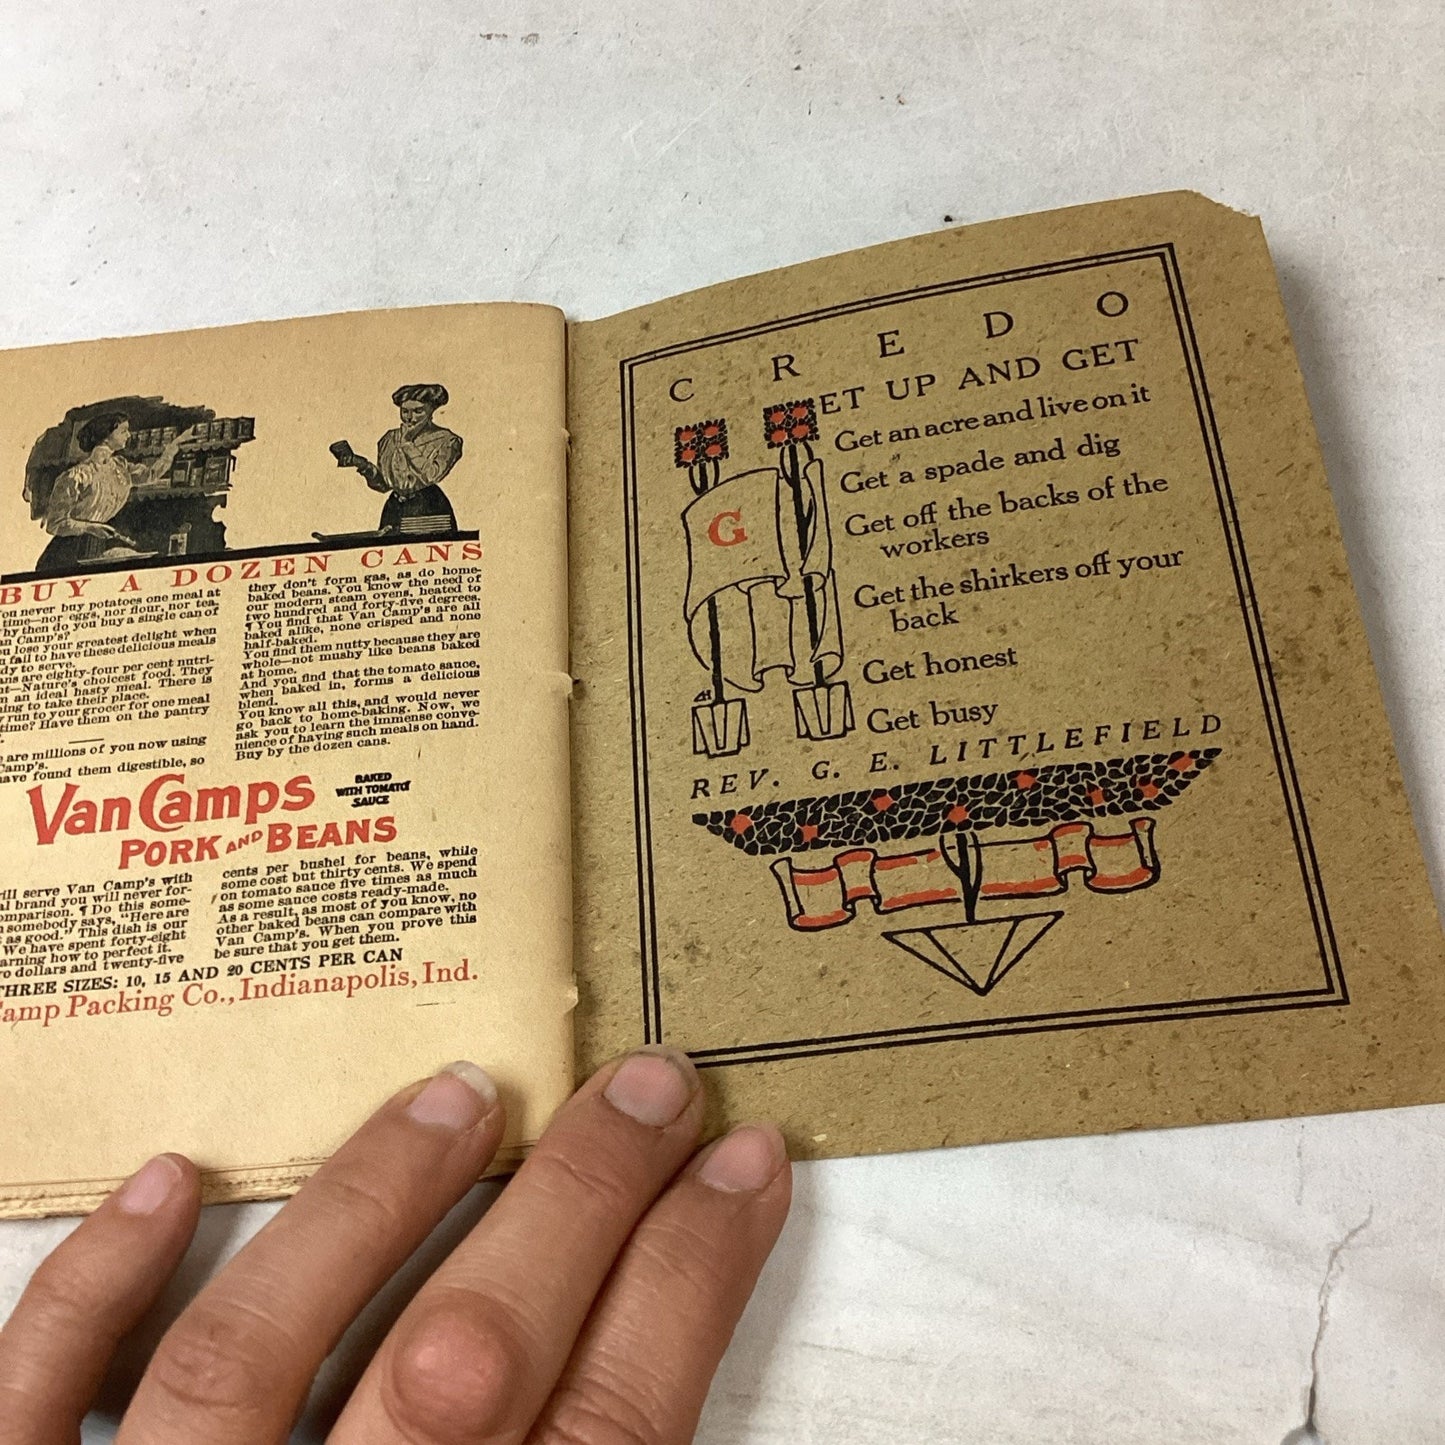 BUY A DOZEN CANS
ou never buy potatoes one meal at
time—nor eggs, nor flour, nor tea.
hy then do you buy a single can of
an Camp's?
u lose your greatest delight when
u fail to have these delicious meals
dy to serve.
ans are eighty-four per cent nutri-
nt—Nature's choicest food. They
m an ideal hasty meal. There is
ning to take their place.
y run to your grocer for one meal
time? Have them on the pantry
are millions of you now using
Camp's.
have found them digestible, so
they don't form gas, as do home-
baked beans. You know the need of
our modern steam ovens, heated to
two hundred and forty-five degrees.
¶ You find that Van Camp's are all
baked alike, none crisped and none
half-baked.
You find them nutty because they are
whole—not mushy like beans baked
at home.
And you find that the tomato sauce,
when baked in, forms a delicious
blend.
You know all this, and would never
go back to home-baking. Now, we
ask you to learn the immense conve-
nience of having such meals on hand.
Buy by the dozen cans.
Van Camp's
BAKED
WITH TOMATO
SAUCE
PORK AND BEANS
ill serve Van Camp's with
al brand you will never for-
omparison. ¶ Do this some-
somebody says, "Here are
as good." This dish is our
We have spent forty-eight
arning how to perfect it.
o dollars and twenty-five
cents per bushel for beans, while
some cost but thirty cents. We spend
on tomato sauce five times as much
as some sauce costs ready-made.
As a result, as most of you know, no
other baked beans can compare with
Van Camp's. When you prove this
be sure that you get them.
THREE SIZES: 10, 15 AND 20 CENTS PER CAN
Camp Packing Co., Indianapolis, Ind.
CREDO
GET UP AND GET
Get an acre and live on it
Get a spade and dig
Get off the backs of the
workers
Get the shirkers off your
back
Get honest
Get busy
REV. G. E. LITTLEFIELD